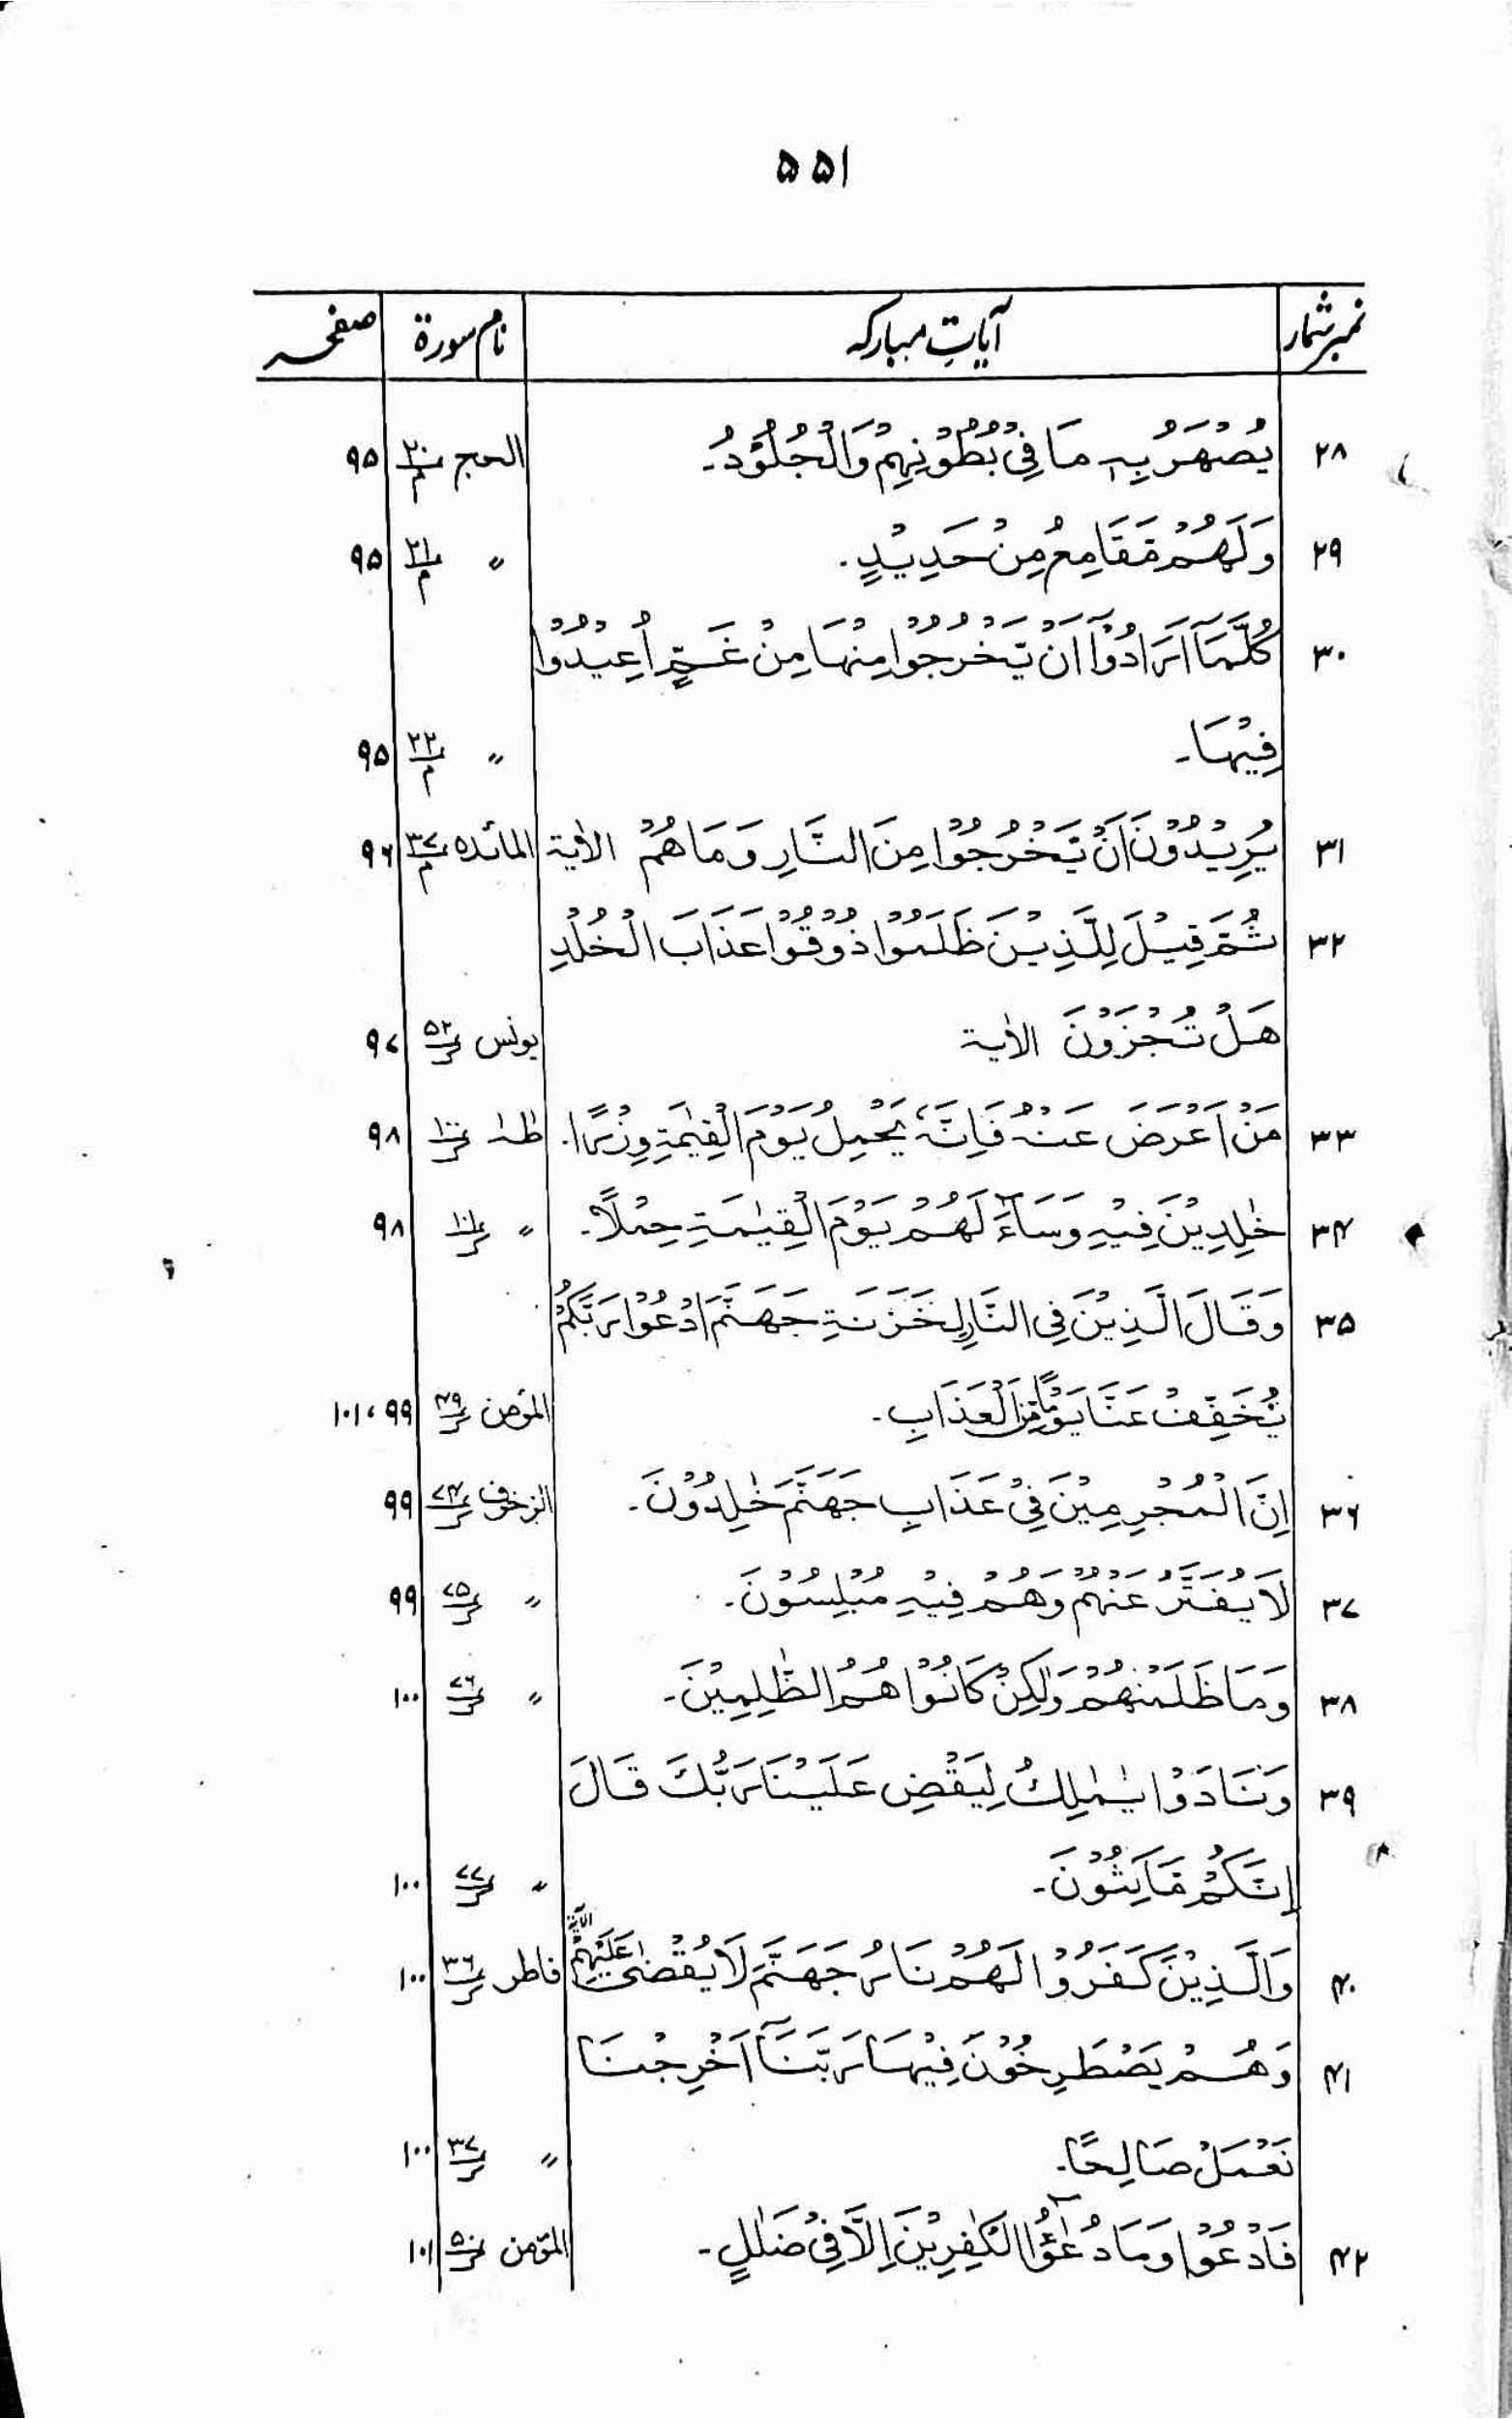 ۵۵۱
نمبر شمار آیاتِ مبارکہ نام سورة صفحہ
۲۸ يُصْهَرُ بِهٖ مَا فِىْ بُطُوْنِهِمْ وَالْجُلُوْدُ۔ الحج ۲۰/م ۹۵
۲۹ وَلَهُمْ مَّقَامِعُ مِنْ حَدِيْدٍ۔ " ۲۱/م ۹۵
۳۰ كُلَّمَآ اَرَادُوْٓا اَنْ يَّخْرُجُوْا مِنْهَا مِنْ غَمٍّ اُعِيْدُوْا
فِيْهَا۔ " ۲۲/م ۹۵
۳۱ يُرِيْدُوْنَ اَنْ يَّخْرُجُوْا مِنَ النَّارِ وَمَا هُمْ الاٰية المائدہ ۳۷/م ۹۶
۳۲ ثُمَّ قِيْلَ لِلَّذِيْنَ ظَلَمُوْا ذُوْقُوْا عَذَابَ الْخُلْدِ
هَلْ تُجْزَوْنَ الاٰية یونس ۵۲/ر ۹۷
۳۳ مَنْ اَعْرَضَ عَنْهُ فَاِنَّهٗ يَحْمِلُ يَوْمَ الْقِيٰمَةِ وِزْرًا۔ طٰہٰ ۱۰۰/ر ۹۸
۳۴ خٰلِدِيْنَ فِيْهِ وَسَآءَ لَهُمْ يَوْمَ الْقِيٰمَةِ حِمْلًا۔ " ۱۰۱/ر ۹۸
۳۵ وَقَالَ الَّذِيْنَ فِى النَّارِ لِخَزَنَةِ جَهَنَّمَ ادْعُوْا رَبَّكُمْ
يُخَفِّفْ عَنَّا يَوْمًا مِّنَ الْعَذَابِ۔ المؤمن ۴۹/ر ۹۹، ۱۰۱
۳۶ اِنَّ الْمُجْرِمِيْنَ فِىْ عَذَابِ جَهَنَّمَ خٰلِدُوْنَ۔ الزخرف ۷۴/ر ۹۹
۳۷ لَا يُفَتَّرُ عَنْهُمْ وَهُمْ فِيْهِ مُبْلِسُوْنَ۔ " ۷۵/ر ۹۹
۳۸ وَمَا ظَلَمْنٰهُمْ وَلٰكِنْ كَانُوْا هُمُ الظّٰلِمِيْنَ۔ " ۷۶/ر ۱۰۰
۳۹ وَنَادَوْا يٰمٰلِكُ لِيَقْضِ عَلَيْنَا رَبُّكَ قَالَ
اِنَّكُمْ مّٰكِثُوْنَ۔ " ۷۷/ر ۱۰۰
۴۰ وَالَّذِيْنَ كَفَرُوْا لَهُمْ نَارُ جَهَنَّمَ لَا يُقْضٰى عَلَيْهِمْ الاٰية فاطر ۳۶/ر ۱۰۰
۴۱ وَهُمْ يَصْطَرِخُوْنَ فِيْهَا رَبَّنَآ اَخْرِجْنَا
نَعْمَلْ صَالِحًا۔ " ۳۷/ر ۱۰۰
۴۲ فَادْعُوْا وَمَا دُعٰٓؤُا الْكٰفِرِيْنَ اِلَّا فِىْ ضَلٰلٍ۔ المؤمن ۵۰/ر ۱۰۱